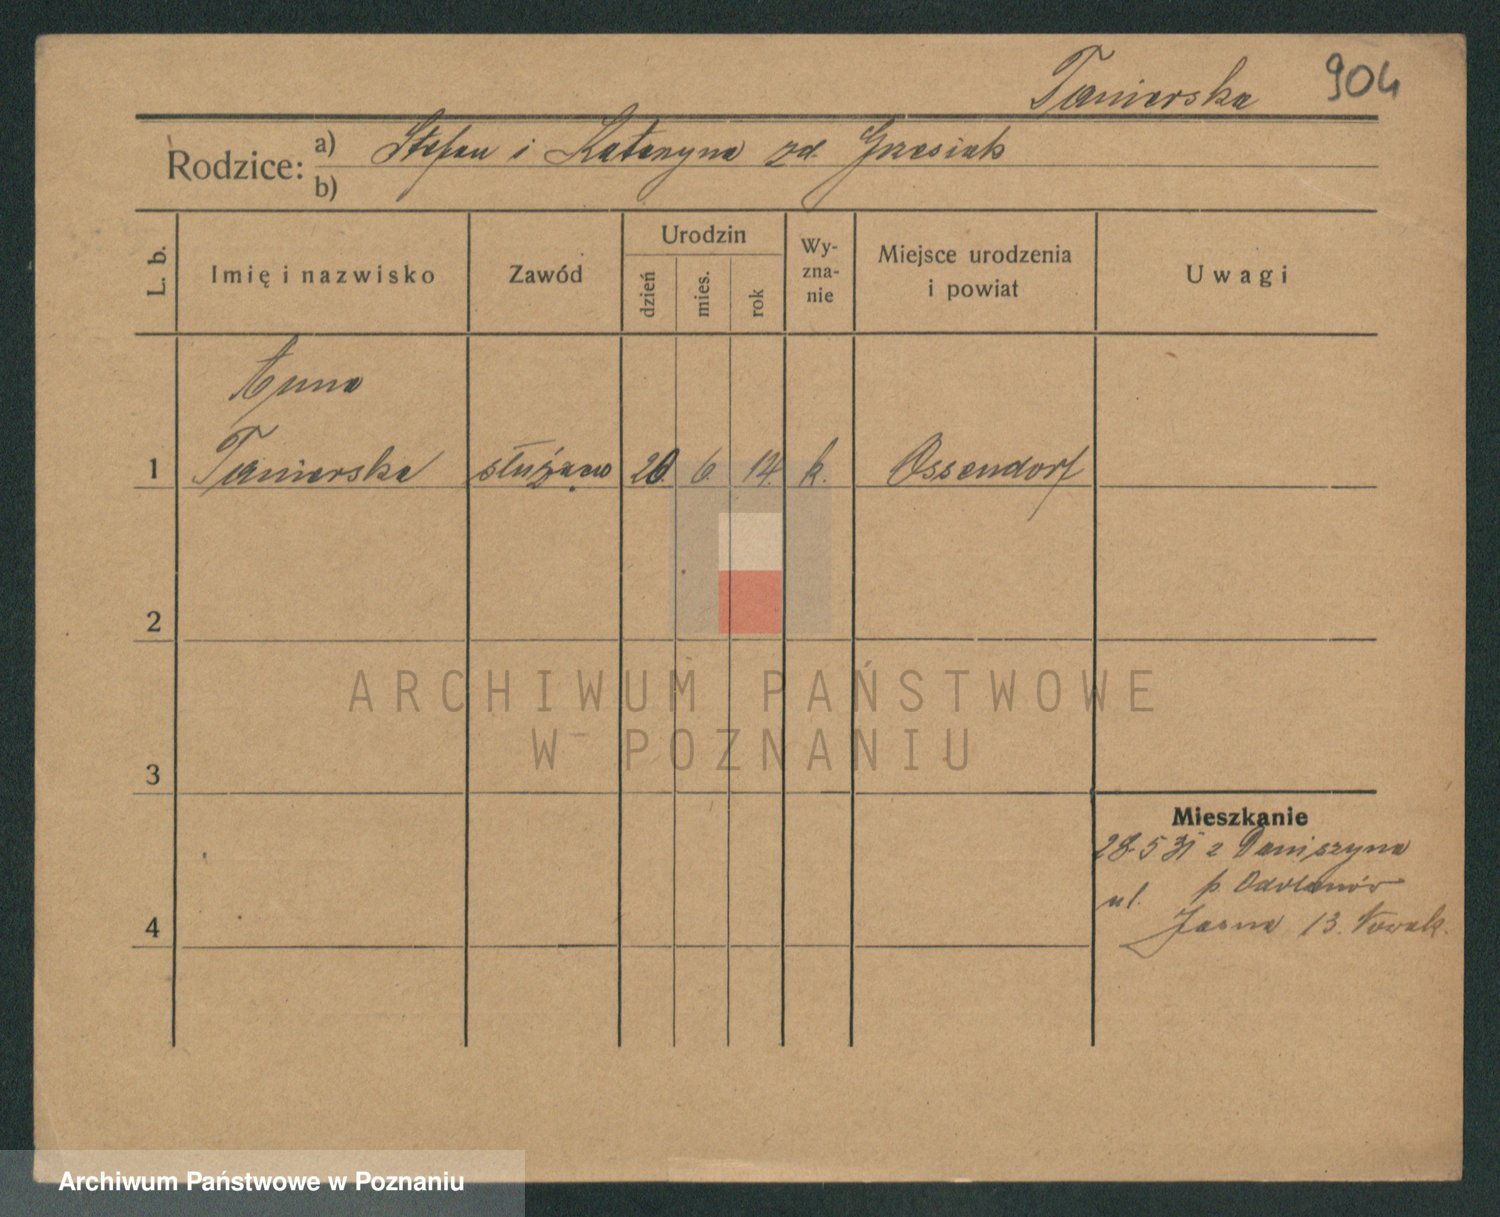 Tanierska 904
Rodzice: a) Stefan i Katarzyna zd. Grzesiak
b)
L. b.
Imię i nazwisko
Zawód
Urodzin
dzień
mies.
rok
Wy-
zna-
nie
Miejsce urodzenia
i powiat
Uwagi
Anna
1 Tanierska służąca 20. 6. 14. k. Ossendorf
2
3
4
Mieszkanie
28-5 31 z Daniszyna
p. Odolanów
ul. Jasna 13. Nowak.
ARCHIWUM PAŃSTWOWE
W POZNANIU
Archiwum Państwowe w Poznaniu